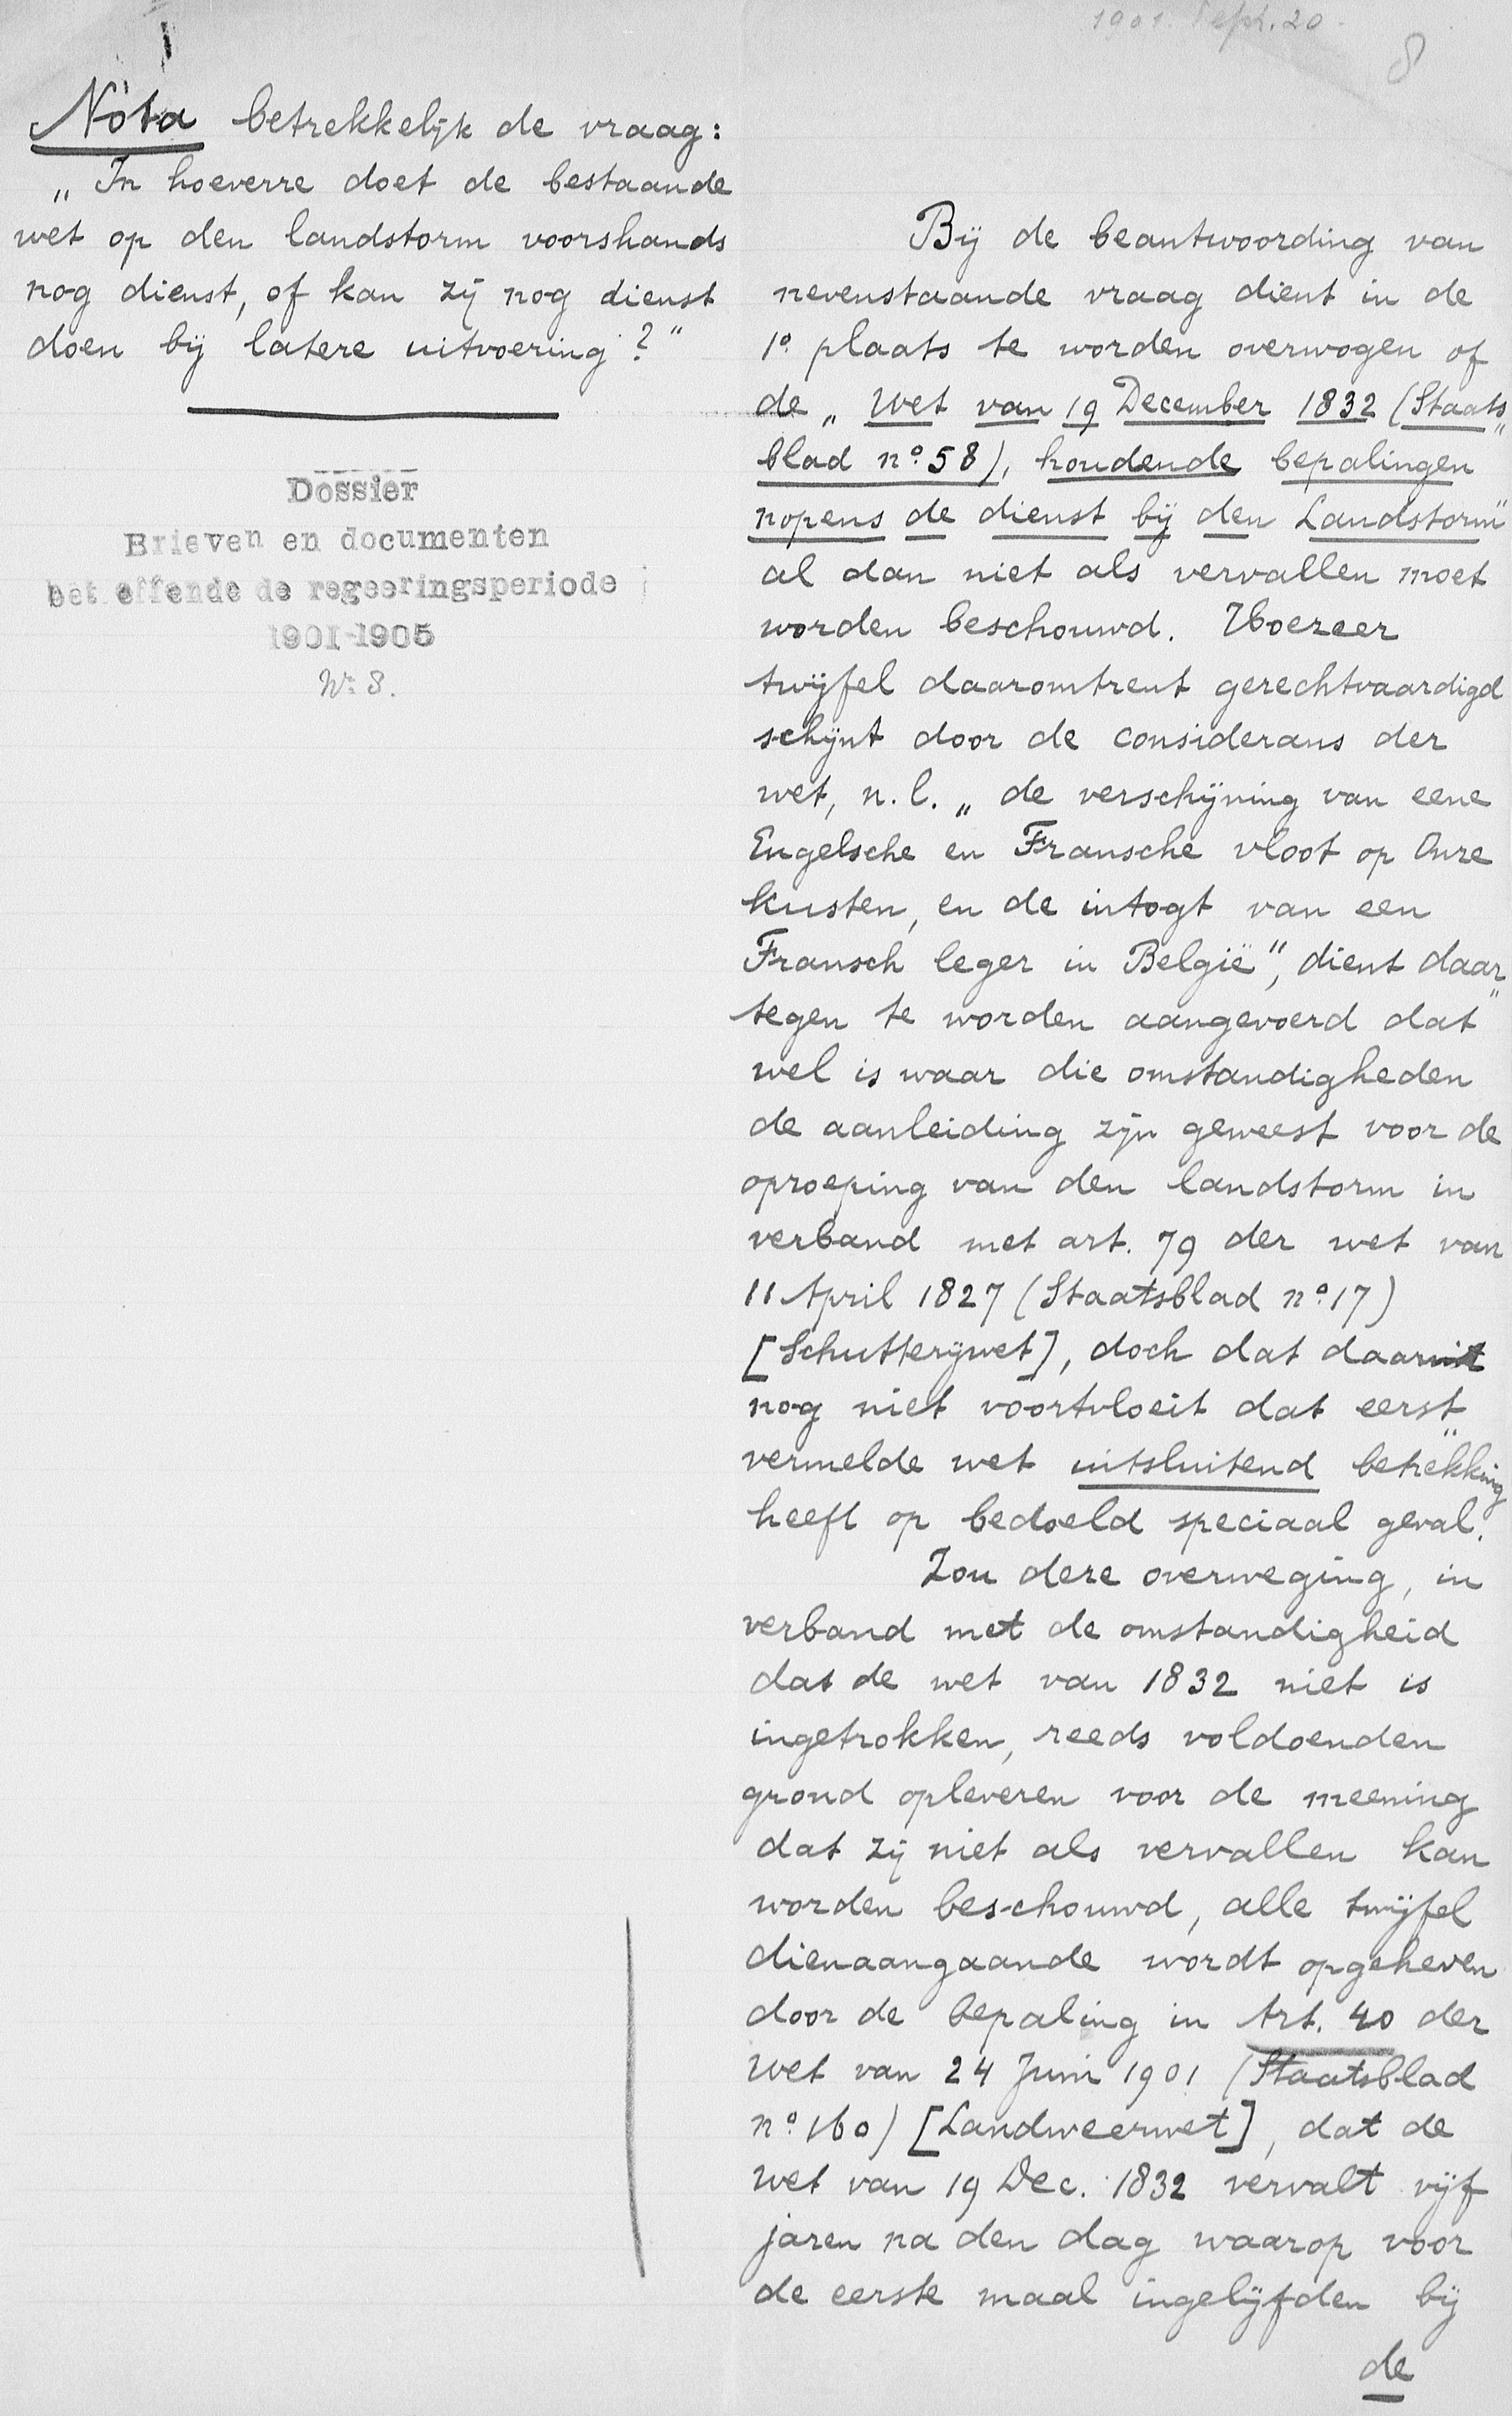 1901. Sept. 20.
8
Nota betrekkelijk de vraag:
„In hoeverre doet de bestaande
wet op den landstorm voorshands
nog dienst, of kan zij nog dienst
doen bij latere uitvoering?"
Dossier
Brieven en documenten
betreffende de regeeringsperiode
1901-1905
No. 8.
Bij de beantwoording van
nevenstaande vraag dient in de
1o. plaats te worden overwogen of
de „Wet van 19 December 1832 (Staats„
blad no. 58), houdende bepalingen
nopens de dienst bij den Landstorm"
al dan niet als vervallen moet
worden beschouwd. Hoezeer
twijfel daaromtrent gerechtvaardigd
schijnt door de considerans der
wet, n.l. „de verschijning van eene
Engelsche en Fransche vloot op Onze
kusten, en de intogt van een
Fransch leger in België", dient daar„
tegen te worden aangevoerd dat
wel is waar die omstandigheden
de aanleiding zijn geweest voor de
oproeping van den landstorm in
verband met art. 79 der wet van
11 April 1827 (Staatsblad no. 17)
[Schutterijwet], doch dat daaruit
nog niet voortvloeit dat eerst„
vermelde wet uitsluitend betrekking
heeft op bedoeld speciaal geval.
Zou deze overweging, in
verband met de omstandigheid
dat de wet van 1832 niet is
ingetrokken, reeds voldoenden
grond opleveren voor de meening
dat zij niet als vervallen kan
worden beschouwd, alle twijfel
dienaangaande wordt opgeheven
door de bepaling in Art. 40 der
Wet van 24 Juni 1901 (Staatsblad
no. 160) [Landweerwet], dat de
Wet van 19 Dec. 1832 vervalt vijf
jaren na den dag waarop voor
de eerste maal ingelijfden bij
de